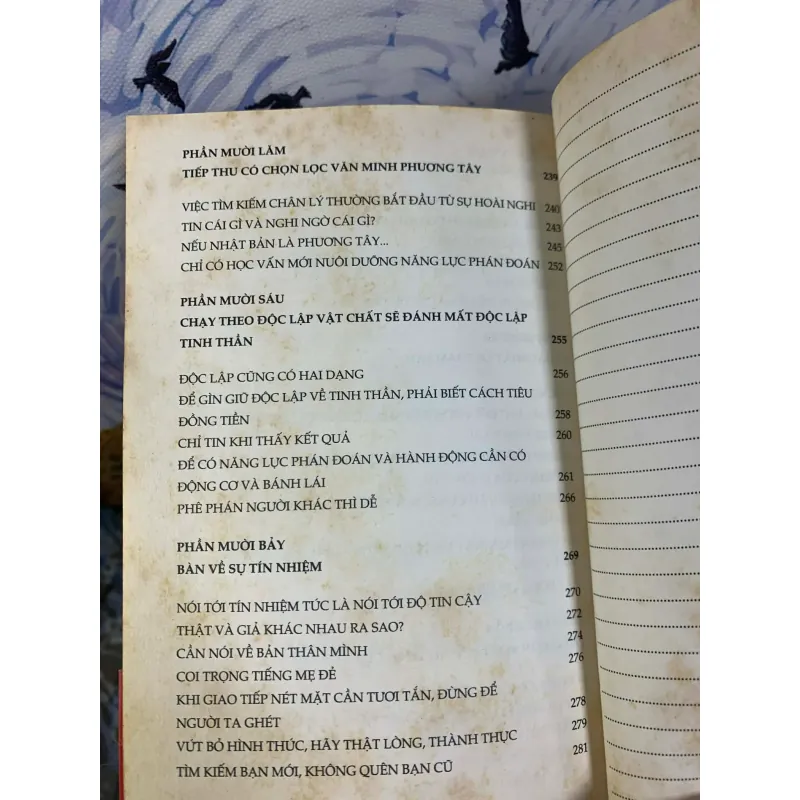 PHẦN MƯỜI LĂM
TIẾP THU CÓ CHỌN LỌC VĂN MINH PHƯƠNG TÂY 239
VIỆC TÌM KIẾM CHÂN LÝ THƯỜNG BẮT ĐẦU TỪ SỰ HOÀI NGHI 240
TIN CÁI GÌ VÀ NGHI NGỜ CÁI GÌ? 243
NẾU NHẬT BẢN LÀ PHƯƠNG TÂY... 245
CHỈ CÓ HỌC VẤN MỚI NUÔI DƯỠNG NĂNG LỰC PHÁN ĐOÁN 252
PHẦN MƯỜI SÁU
CHẠY THEO ĐỘC LẬP VẬT CHẤT SẼ ĐÁNH MẤT ĐỘC LẬP
TINH THẦN 255
ĐỘC LẬP CŨNG CÓ HAI DẠNG 256
ĐỂ GÌN GIỮ ĐỘC LẬP VỀ TINH THẦN, PHẢI BIẾT CÁCH TIÊU
ĐỒNG TIỀN 258
CHỈ TIN KHI THẤY KẾT QUẢ 260
ĐỂ CÓ NĂNG LỰC PHÁN ĐOÁN VÀ HÀNH ĐỘNG CẦN CÓ
ĐỘNG CƠ VÀ BÁNH LÁI 261
PHÊ PHÁN NGƯỜI KHÁC THÌ DỄ 266
PHẦN MƯỜI BẢY
BÀN VỀ SỰ TÍN NHIỆM 269
NÓI TỚI TÍN NHIỆM TỨC LÀ NÓI TỚI ĐỘ TIN CẬY 270
THẬT VÀ GIẢ KHÁC NHAU RA SAO? 272
CẦN NÓI VỀ BẢN THÂN MÌNH 274
COI TRỌNG TIẾNG MẸ ĐẺ 276
KHI GIAO TIẾP NÉT MẶT CẦN TƯƠI TẮN, ĐỪNG ĐỂ
NGƯỜI TA GHÉT 278
VỨT BỎ HÌNH THỨC, HÃY THẬT LÒNG, THÀNH THỰC 279
TÌM KIẾM BẠN MỚI, KHÔNG QUÊN BẠN CŨ 281